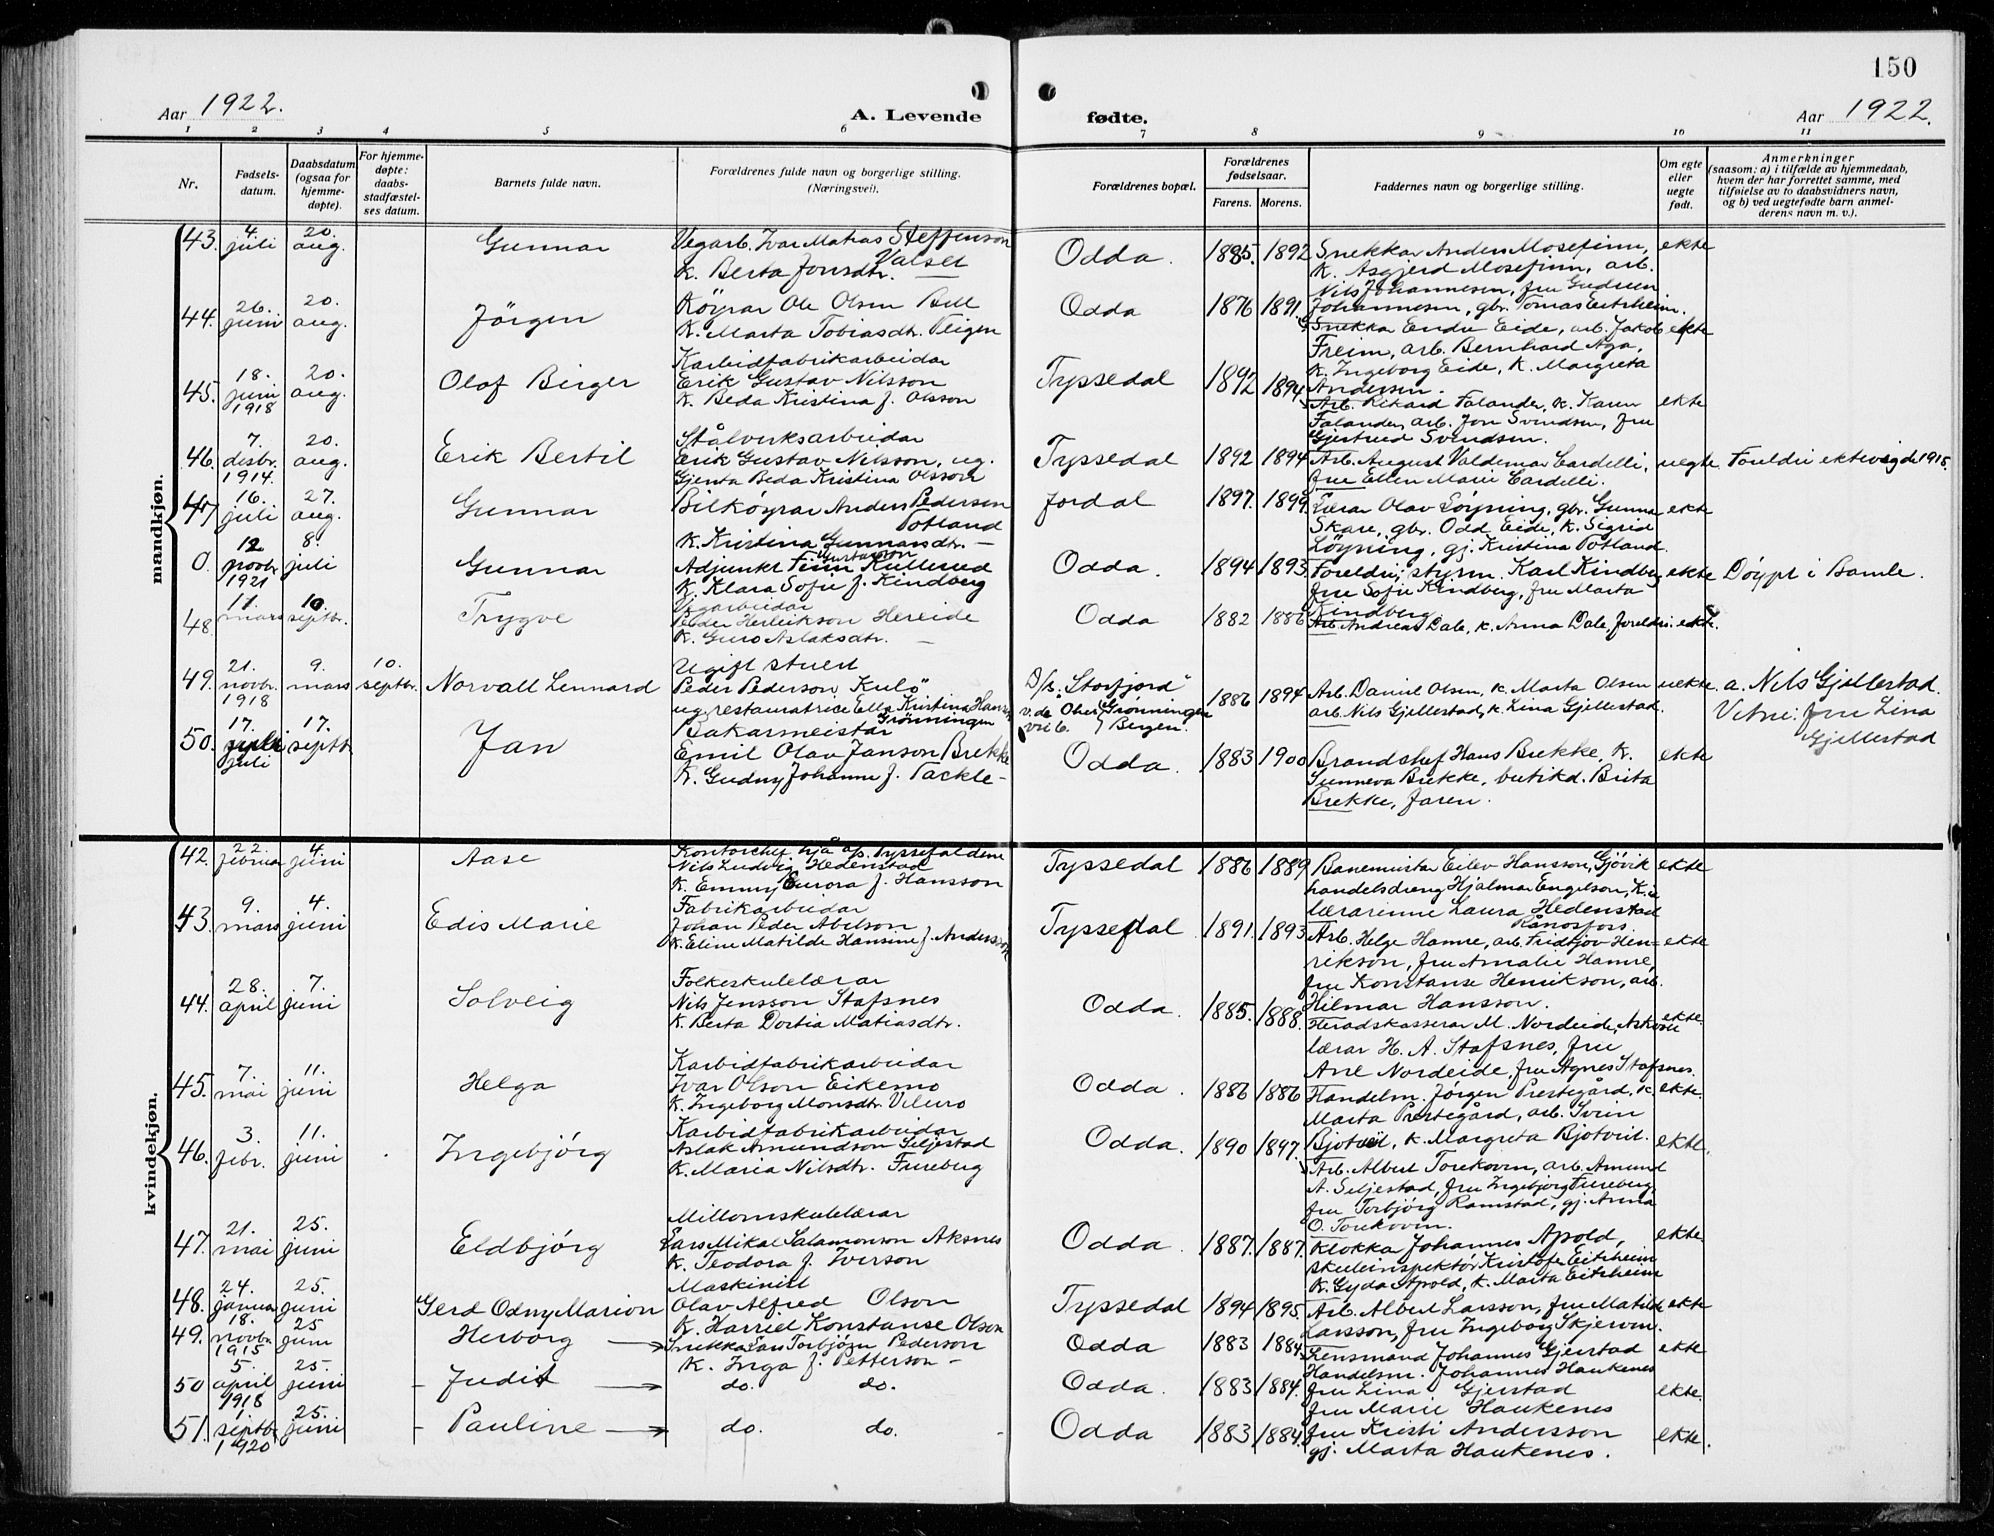 150
Aar 1922.
A. Levende fødte.
Aar 1922.
1 2 3 4 5 6 7 8 9 10 11
Nr.
Fødsels-
datum.
Daabsdatum
(ogsaa for
hjemme-
døpte).
For hjemme-
døpte:
daabs-
stadfæstel-
ses datum.
Barnets fulde navn.
Forældrenes fulde navn og borgerlige stilling.
(Næringsvei).
Forældrenes bopæl.
Forældrenes
fødselsaar.
Farens. Morens.
Faddernes navn og borgerlige stilling.
Om egte
eller
uegte
født.
Anmerkninger
(saasom: a) i tilfælde av hjemmedaab,
hvem der har forrettet samme, med
tilføielse av to daabsvidners navn,
og b) ved uegtefødte barn anmel-
derens navn m. v.).
mandkjøn.
43. 4. juli 20. aug. Gunnar
Vegarb. Ivar Matias Steffenson
Valset
k. Berta Jonsdtr. —
Odda. 1885. 1892
Snekkar Anders Mosefinn,
k. Asgjerd Mosefinn, arb.
Nils Johannesen, fru Gudrun
Johannesen, gbr. Tomas Eitrheim.
ekte
44. 26. juni 20. aug. Jörgen
Köyrar Ole Olsen Bell
k. Marta Tobiasdtr. Fleigen
Odda 1876 1891.
Snekka Endre Eide, arb. Jakob
Freim, arb. Bernhard Aga,
k. Ingeborg Eide, k. Margreta
Andersen.
ekte
45. 18. juni 1918 20. aug. Olaf Birger
Karbidfabrikarbeidar
Erik Gustav Nilsson
k. Beda Kristina f. Olsson
Tyssedal 1892 1894
Arb. Rikard Falander, k. Karen
Falander, arb. Jon Svendsen, fru
Gjertrud Svendsen.
ekte
46. 7. desbr. 1914. 20. aug. Erik Bertil
Stålverksarbeidar
Erik Gustav Nilsson, ug.
Gjenta Beda Kristina Olsson
Tyssedal 1892 1894
Arb. August Valdemar Cardelli,
fru Ellen Marie Cardelli.
uegte
Foreldri ektevigde 1915.
47 16. juli 27. aug. Gunnar
Bilköyrar Anders Pedersen
Totland
k. Kristina Gunnarsdtr. —
Jordal 1897. 1899.
Lærar Olav Löyning, gbr. Gunnar
Skare, gbr. Odd Eide, k. Sigrid
Löyning, gj. Kristina Totland.
ekte
0. 12 novbr. 1921 8. juli Gunnar
Gustavson
Adjunkt Finn Kullerud
k. Klara Sofie f. Kindberg
Odda. 1894 1893.
Foreldri, styrm. Karl Kindberg
fru Sofie Kindberg, fru Marta
Kindberg.
ekte
Döypt i Bamle.
48. 11. mars 10. septbr. Trygve
Vegarbeidar
Peder Herleikson Hereide
k. Guro Aslaksdtr. —
Odda 1882 1886
Arb. Andreas Dale, k. Anna Dale, foreldri. ekte.
49. 21. novbr. 1918 9. mars 10. septbr. Norvall Lennard
Ugift stuert
Peder Pederson Kulö
ug. restauratrice Ella Kristina Hansen
Grönningen
D/s. "Storfjord"
Grönningen
Bergen.
1886 1894
Arb. Daniel Olsen, k. Marta Olsen
arb. Nils Gjellestad, k. Lina Gjellestad.
uekte.
a. Nils Gjellestad.
Vitne: fru Lina
Gjellestad
50. 17. juli 17. septbr. Jan
Bakarmeistar
Emil Olav Janson Brekke
k. Gudny Johanne f. Tackle —
Odda. 1883 1900
Brandshef Hans Brekke, k.
Sunneva Brekke, butikd. Brita
Brekke, faren.
ekte
kvindekjøn.
42. 22. februar 4. juni Aase
Kontorchef hjå a/s. Tyssefaldene
Nils Ludvig Hedenstad
k. Emmy Aurora f. Hansson
Tyssedal 1886 1889
Banemeister Eilev Hansson, Gjövik
handelsdreng Hjalmar Engelson,
lærarinne Laura Hedenstad
Rånosfoss.
ekte
43. 9. mars 4. juni Edis Marie
Fabrikarbeidar
Johan Peder Abelson
k. Eline Matilde Hansine f. Andersson
Tyssedal 1891. 1893
Arb. Helge Hamre, arb. Fridtjov Hen-
rikson, fru Amalie Hamre,
fru Konstanse Henrikson, arb.
Hilmar Hansson.
ekte
44. 28. april 7. juni Solveig
Folkeskulelærar
Nils Jensson Stafsnes
k. Berta Dortia Matiasdtr.
Odda. 1885. 1888.
Heradskasserar M. Nordeide, Askvoll
lærar H. A. Stafsnes, fru
Ane Nordeide, fru Agnes Stafsnes.
ekte.
45. 7. mai 11. juni Helga
Karbidfabrikarbeidar
Ivar Olson Eikemo
k. Ingeborg Monsdtr. Vileiro
Odda. 1886 1886
Handelm. Jørgen Prestegård, k.
Marta Prestegård, arb. Svein
Bjotveit, k. Margreta Bjotveit.
ekte.
46. 3. febr. 11. juni Ingebjörg
Karbidfabrikarbeidar
Aslak Amundson Seljestad
k. Maria Nilsdtr. Fureberg
Odda. 1890 1897.
Arb. Albert Torekoven, arb. Amund
A. Seljestad, fru Ingebjörg Fureberg,
fru Torbjörg Ramstad, gj. Anna
O. Torekoven.
ekte.
47. 21. mai 25. juni Eldbjörg
Millomskulelærar
Lars Mikal Salamonson Aksnes
k. Teodora f. Iverson
Odda. 1887. 1887.
Klokka Johannes Apold,
skuleinspektör Kristofer Eitrheim
k. Gyda Apold, k. Marta Eitrheim
ekte.
48. 24. januar 25. juni Gerd Odny Marion
Maskinist
Olav Alfred Olson
k. Harriet Konstanse Olson
Tyssedal 1894 1895.
Arb. Albert Larsson, fru Matilde
Larsson, fru Ingeborg Skjerven.
ekte
49. 18. novbr. 1915 25 juni Herborg
Snekka Lars Torbjörn Pederson
k. Inga f. Petterson —
Odda 1883 1884.
Lensmand Johannes Gjerstad
Handelsm. Johannes Haukenes
ekte
50 5. april 1918 25. juni - Judit
do. do.
Odda. 1883 1884.
fru Lina Gjerstad
fru Marie Haukenes
ekte.
51. 1. septbr. 1920 25. juni - Pauline
do. do.
Odda 1883 1884.
fru Kristi Andersson
gj. Marta Haukenes.
ekte.